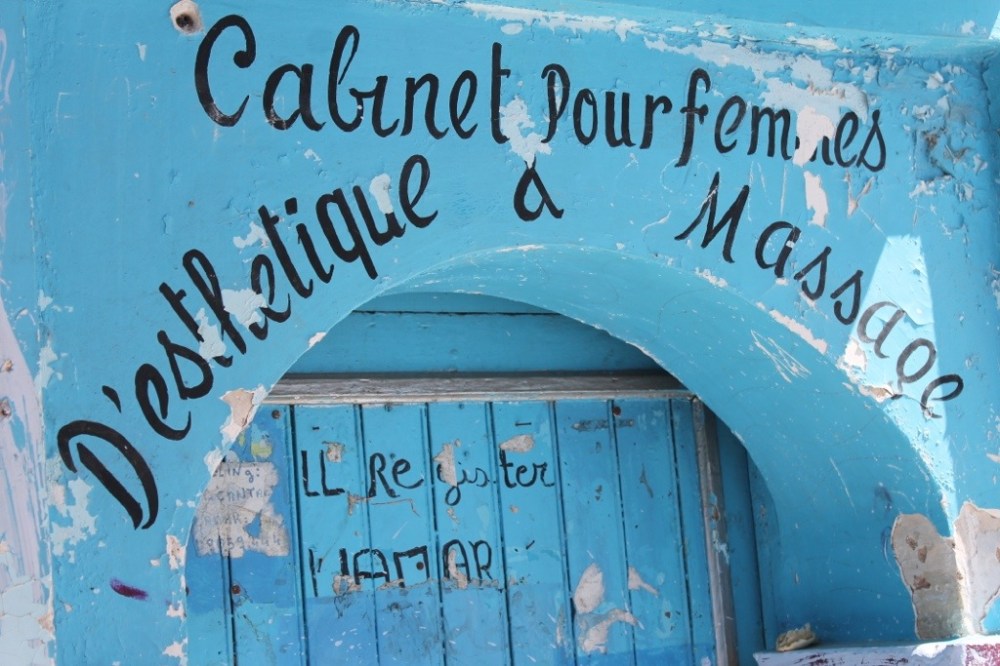 Cabinet Pour femmes
D'esthetique à Massage
LL Register
HAMAR